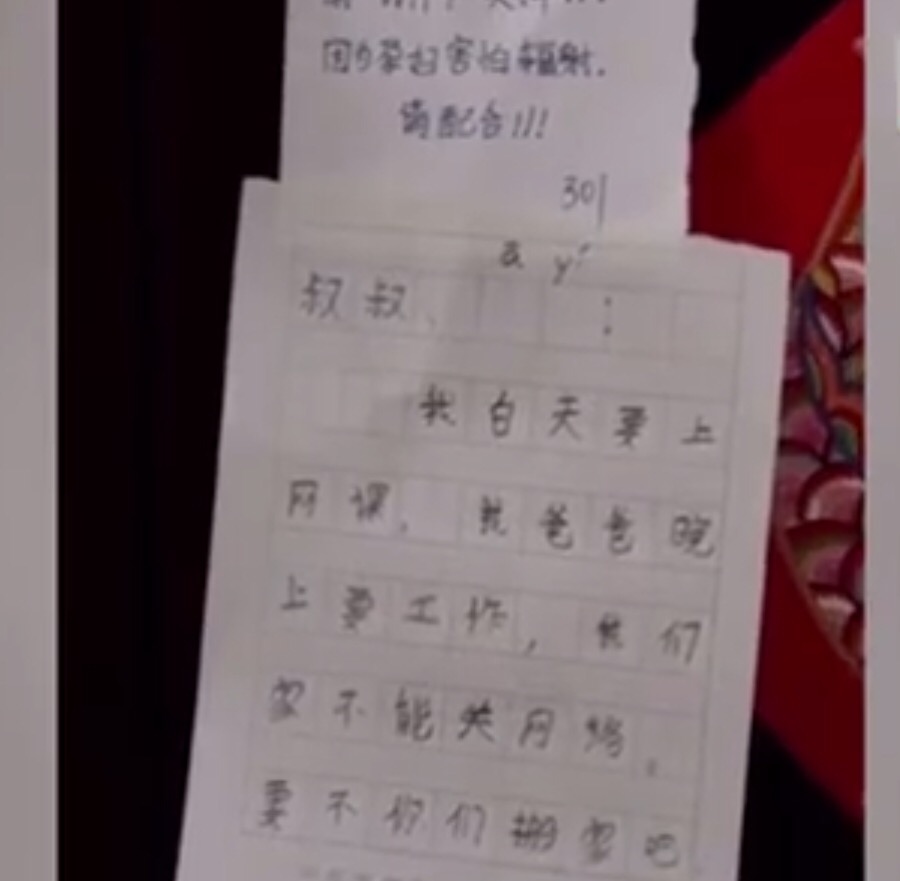 因为孕妇害怕辐射.
请配合!!!
301
a yí
叔叔、 :
我白天要上
网课,我爸爸晚
上要工作,我们
家不能关网络。
要不你们搬家吧